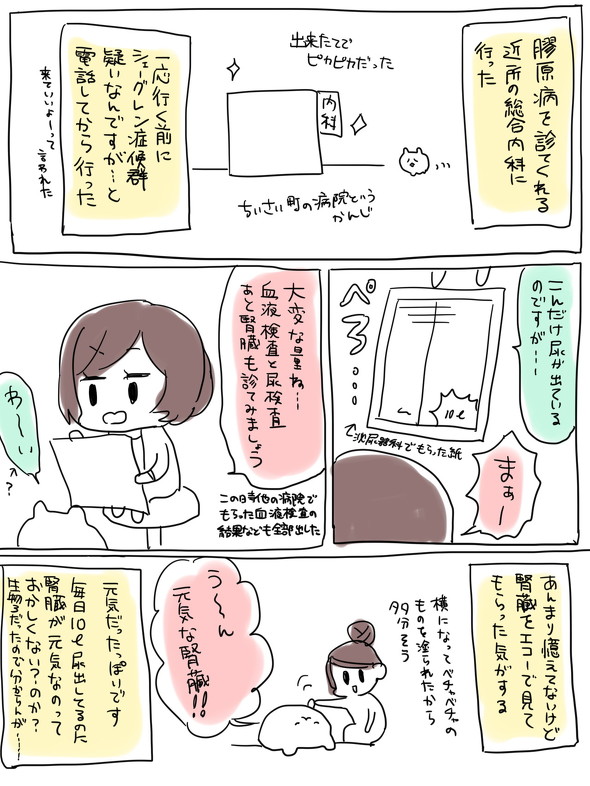 膠原病を診てくれる
近所の総合内科に
行った
出来たてで
ピカピカだった
内科
ちいさい町の病院という
かんじ
一応行く前に
シェーグレン症候群
疑いなんですが…と
電話してから行った
来ていいよーって
言われた
こんだけ尿が出ている
のですが…
ペろ…
10ℓ
←泌尿器科でもらった紙
まぁー
大変な量ね…
血液検査と尿検査
あと腎臓も診てみましょう
わーい
←?
この時他の病院で
もらった血液検査の
結果なども全部出した
あんまり憶えてないけど
腎臓をエコーで見て
もらった気がする
横になってベチャベチャの
ものを塗られたから
多分そう
う〜ん
元気な腎臓!!
元気だったっぽいです
毎日10ℓ尿出してるのに
腎臓が元気なのって
おかしくない?のか?
生物だったので分からんが……